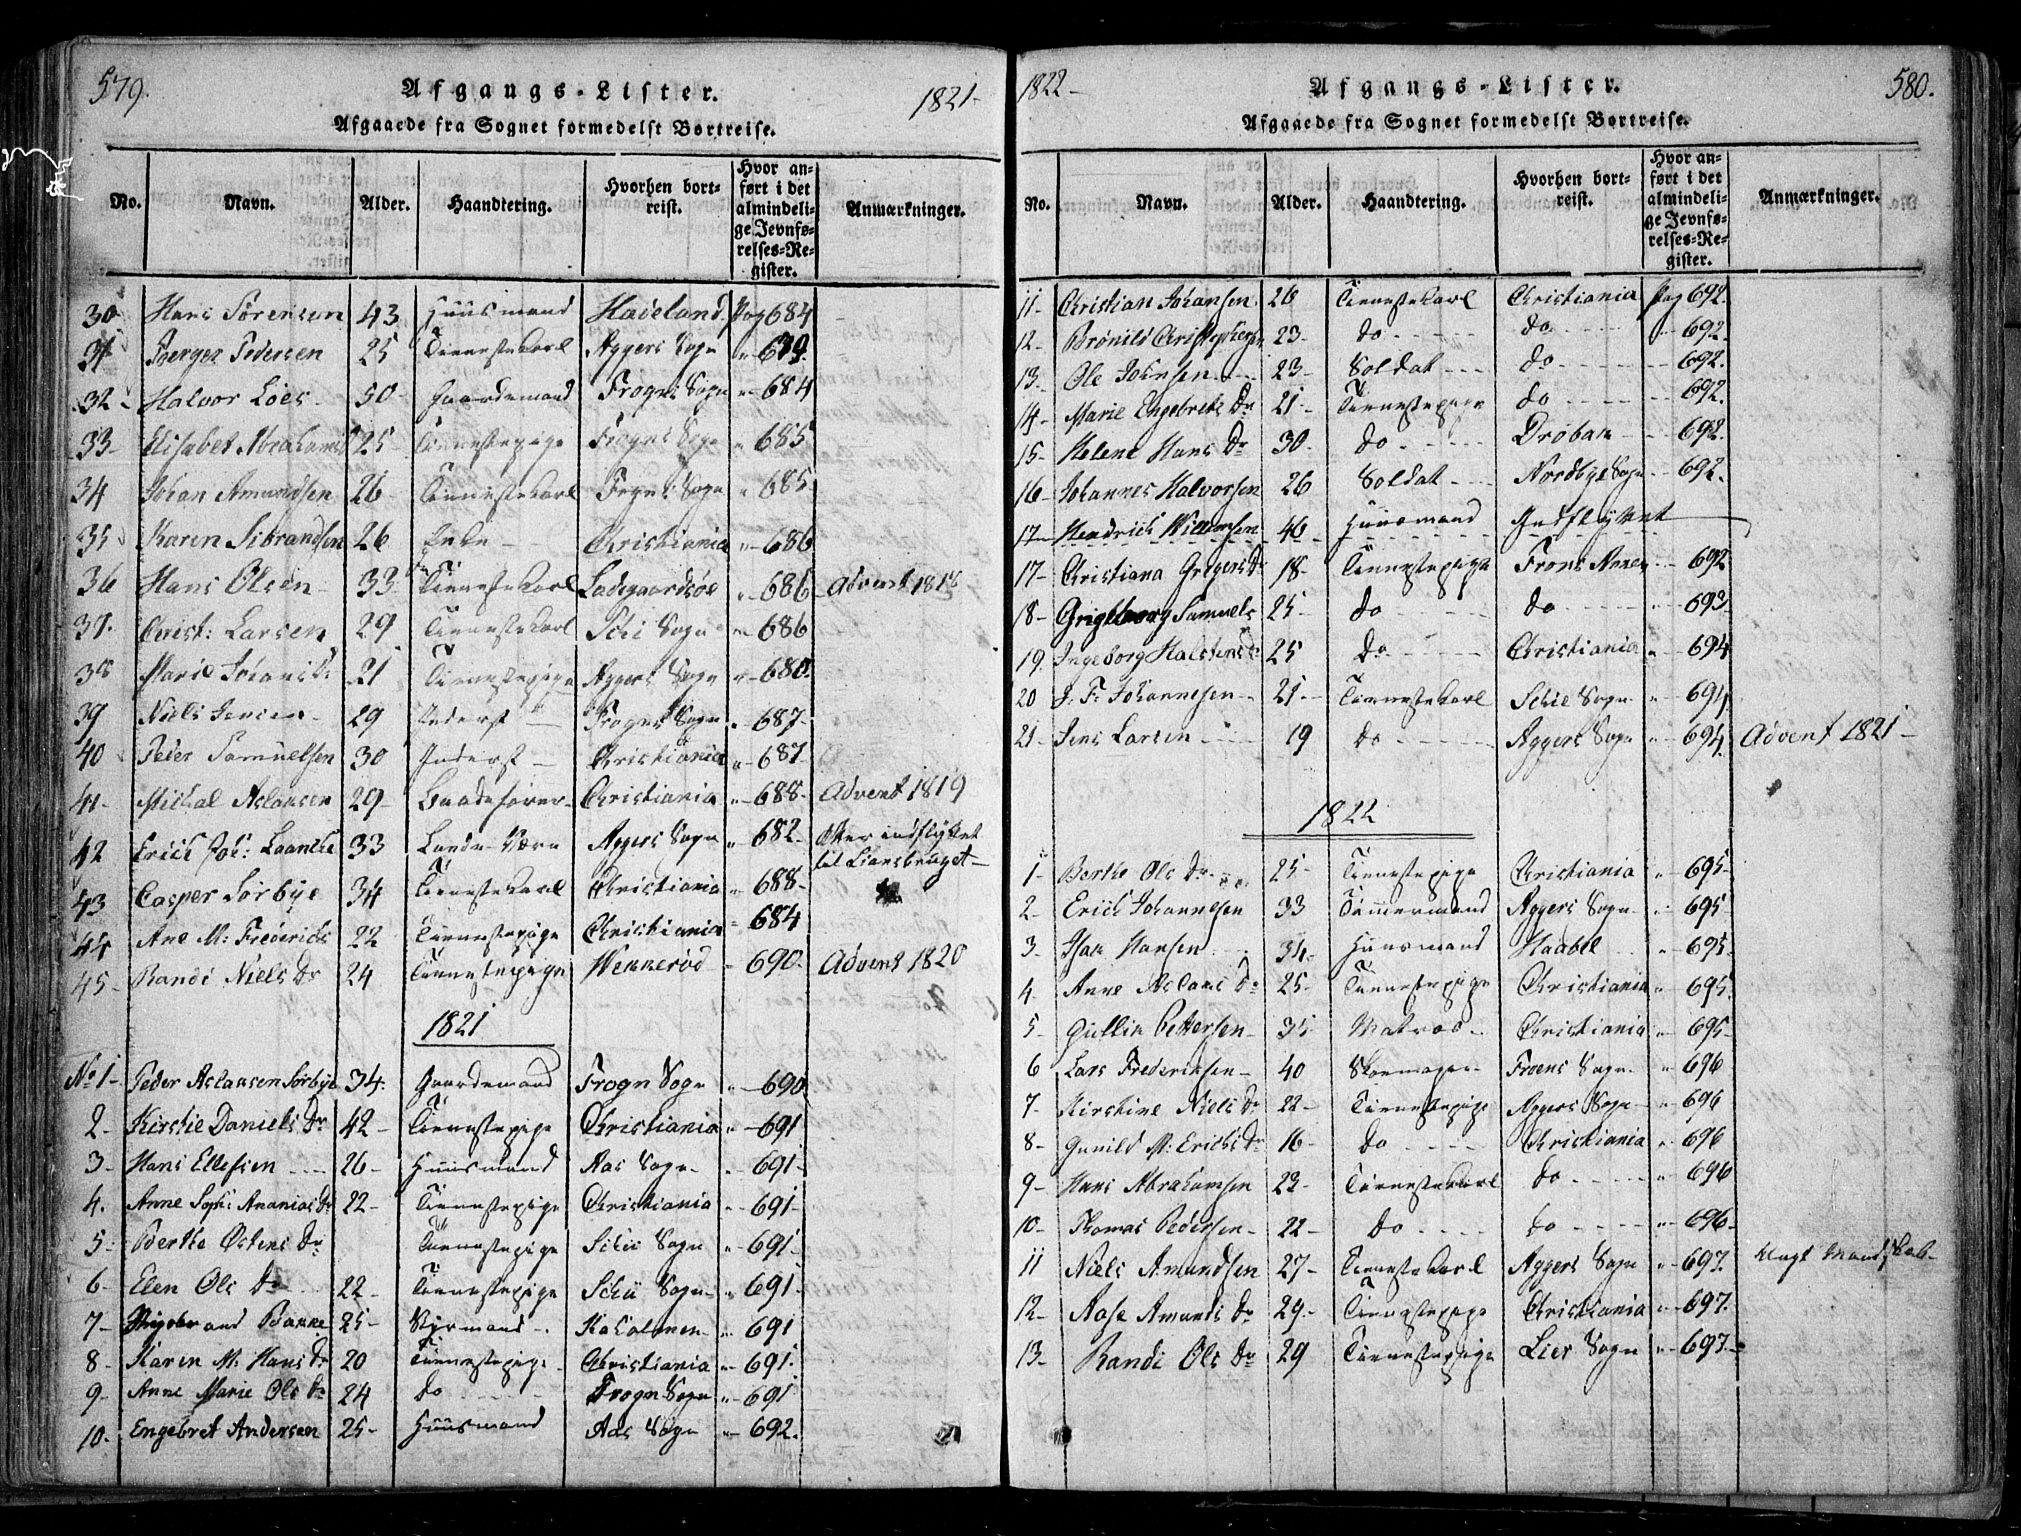 579.
Afgangs-Lister.
1821-
Afgaaede fra Sognet formedelst Bortreise.
No. Navn. Alder. Haandtering. Hvorhen bortreist. Hvor anført i det almindelige Jevnførelses-Register. Anmærkninger.
30 Hans Sörensen 43 Huusmand Hadeland Pag 684
31 Berger Pedersen 25 Tienestekarl Aggers Sogn " 679
32 Halvor Löes 50 Gaardemand Frogns Sogn " 684
33 Elisabet Abrahams 25 Tienestepige Frogns Sogn " 685
34 Johan Amundsen 26 Tienestekarl Frogns Sogn " 685
35 Karen Sibrandsen 26 Enke Christiania " 686
36 Hans Olsen 33 Tienestekarl Ladegaardsöe " 686 Advent 1818
37 Christ: Larsen 29 Tienestekarl Schi Sogn " 686
38 Marie Johans Dr 21 Tienestepige Aggers Sogn " 680
39 Niels Jensen 29 Inderst Frogns Sogn " 687
40 Peder Samuelsen 30 Inderst Christiania " 687
41 Michal Aslaksen 29 Baadsfører Christiania " 688 Advent 1819
42 Erich Joh: 33 Lande-Værn Aggers Sogn " 682 Efter indflyttet til Liansbruget
43 Casper Sørbye 34 Tienestekarl Christiania " 688
44 Ane M: Frederichs 22 Tienestepige Christiania " 684
45 Randi Niels Dr 24 Tienestepige " 690 Advent 1820
1821
No 1 Peder Aslaksen Sørbye 34 Gaardemand Frogn Sogn " 690
2 Kirstie Daniels Dr 42 Tienestepige Christiania " 691
3 Hans Ellefsen 26 Huusmand Aas Sogn " 691
4. Anne Soph: Ananias Dr 22 Tienestepige Christiania " 691
5 Berthe Østens Dr Tienestepige Schie Sogn " 691
6 Elen Ols Dr 22 Tienestepige Schii Sogn " 691
7 25 Styrmand " 691
8 Karen M: Hans Dr 20 Tienestepige Christiania " 691
9 Anne Marie Ols Dr 24 do Frogn Sogn " 691
10. Engebret Andersen 25 Huusmand Aas Sogn " 692.
1822-
Afgangs-Lister.
580.
Afgaaede fra Sognet formedelst Bortreise.
No. Navn. Alder. Haandtering. Hvorhen bortreist. Hvor anført i det almindelige Jevnførelses-Register. Anmærkninger.
11 Christian Johansen 26 Tienestekarl Christiania pag 692.
12 Brönild Christophersen 23 do do " 692.
13 Ole Johnsen 23 Soldat do 692.
14 Marie Engebrets Dr 21 Tienestepige do 692.
15 Helene Hans Dr 30 do Drøbak 692.
16 Johannes Halvorsen 26 Soldat Nordbye Sogn 692.
17 Hendrich Willumsen 46 Huusmand Indflyttet
17 Christiana Gregers Dr 18 Tienestepige Frons Annex 692
18 Samuels 25 do do 693
19. Ingeborg Halstens Dr 25 do Christiania " 694
20 J. F. Johannesen 21 Tienestekarl Schie Sogn " 694
21 Jens Larsen 19 do Aggers Sogn " 694 Advent 1821
1822
1 Berthe Ols Dr 25 Tienestepige Christiania " 695
2 Erich Johannesen 33 Tømmermand Aggers Sogn " 695
3 Isak Hansen 34 Huusmand Haabel " 695
4 Anne Aslaks Dr 25 Tienestepige Christiania " 695
5 Gullik Pettersen 35 Matros Christiania " 695
6 Lars Frederiksen 40 Skoemager Froens Sogn " 696
7 Kirstine Niels Dr 22 Tienestepige Aggers Sogn " 696
8 Gunild M: Erichs Dr 16 do Christiania " 696
9 Hans Abrahamsen 22 Tienestekarl do " 696
10 Thomas Pedersen 22 do do " 696
11 Niels Amundsen 27 Tienestekarl Aggers Sogn " 697. Vagt Mandskab
12 Aase Amunds Dr 29 Tienestepige Christiania " 697.
13 Randi Ols Dr 29 Tienestepige Lier Sogn " 697.